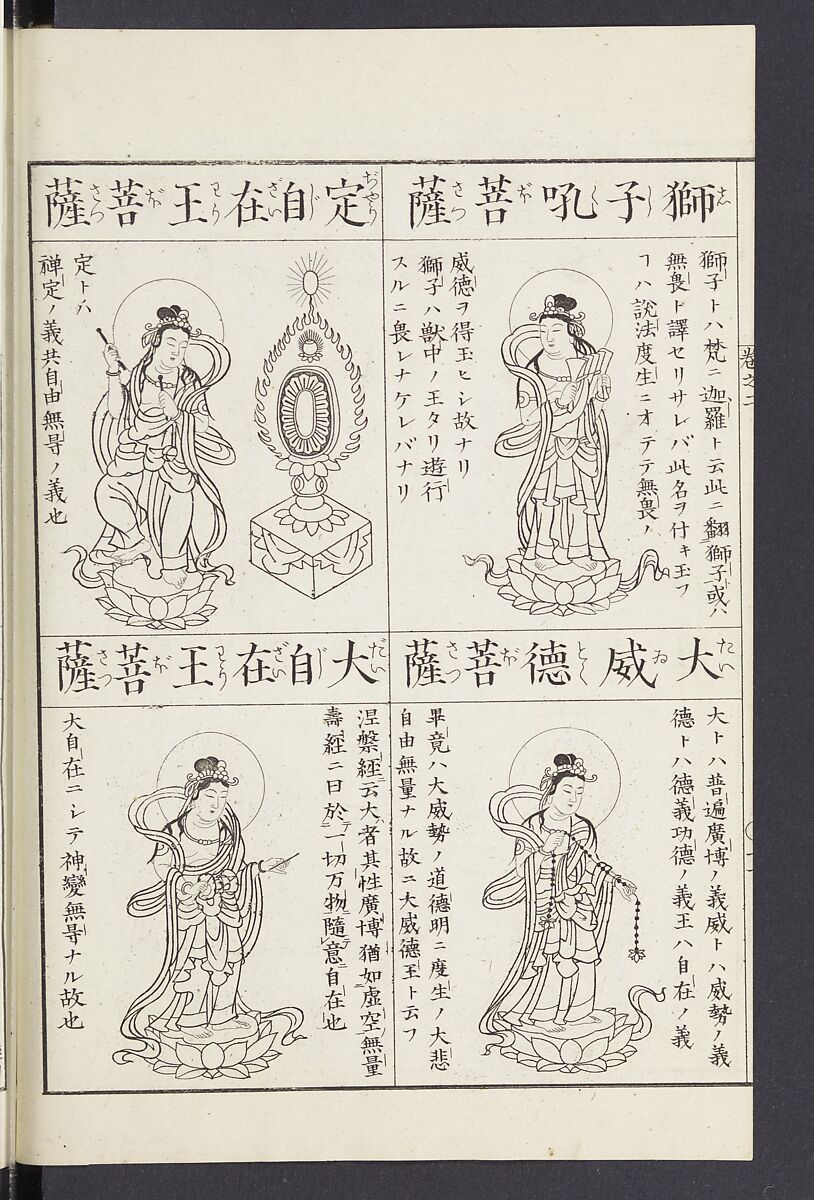 獅子吼菩薩
し し く ぼ さつ
獅子トハ梵ニ迦羅ト云此ニ翻獅子或ハ
無畏ト譯セリサレバ此名ヲ付キ玉フ
フハ説法度生ニオテテ無畏ノ
威德ヲ得玉ヒシ故ナリ
獅子ハ獣中ノ王タリ遊行
スルニ畏レナケレバナリ
定自在王菩薩
ぢやう じ ざい わう ぼ さつ
定トハ
禅定ノ義共自由無㝵ノ義也
大威德菩薩
たい ゐ とく ぼ さつ
大トハ普遍廣博ノ義威トハ威勢ノ義
德トハ德義功德ノ義王ハ自在ノ義
畢竟ハ大威勢ノ道德明ニ度生ノ大悲
自由無量ナル故ニ大威德王ト云フ
大自在王菩薩
だい じ ざい わう ぼ さつ
涅槃經云大者其性廣博猶如虛空無量
壽經ニ曰於一切万物隨意自在也
大自在ニシテ神變無㝵ナル故也
卷之二